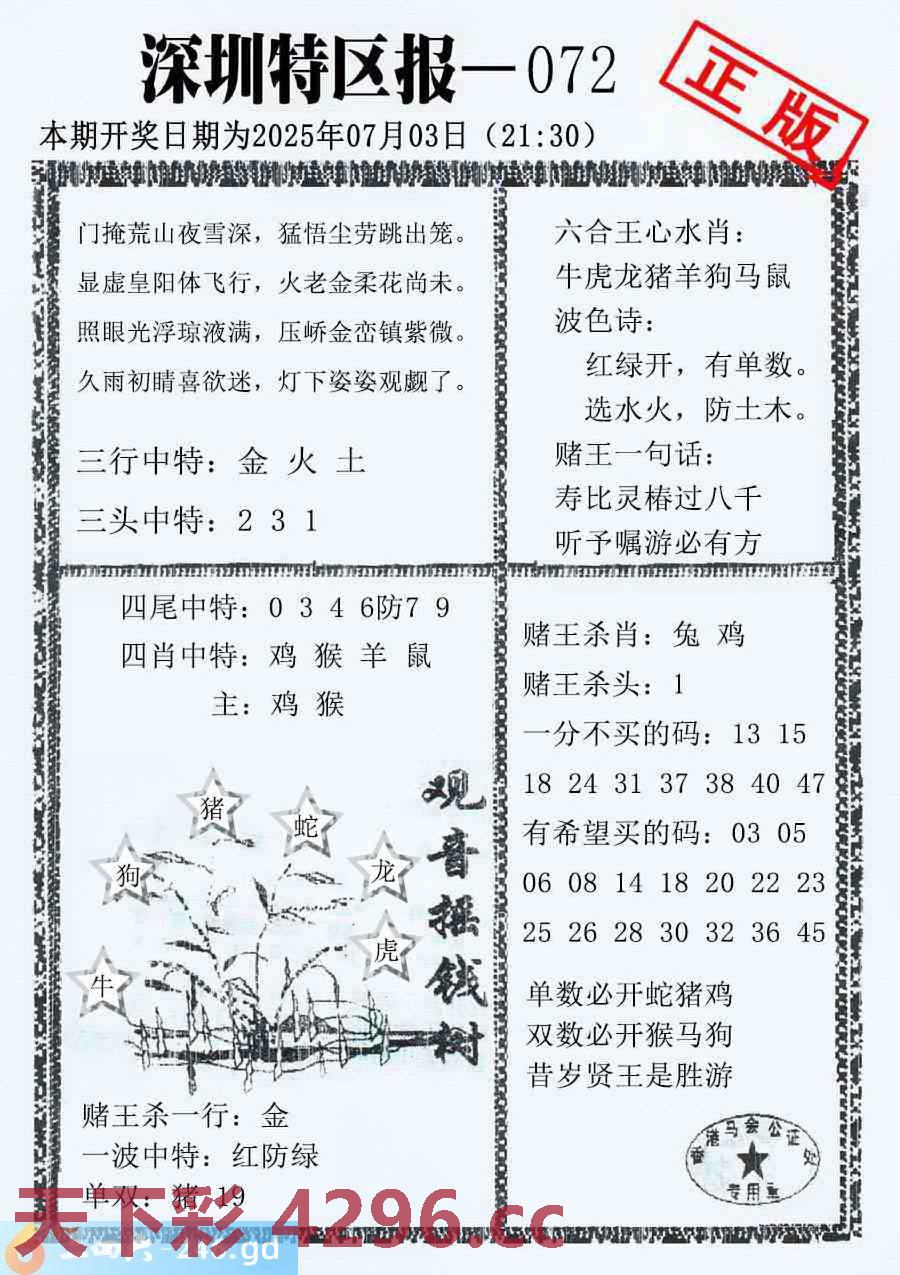 深圳特区报—072
正版
本期开奖日期为2025年07月03日（21:30）
门掩荒山夜雪深，猛悟尘劳跳出笼。
显虚皇阳体飞行，火老金柔花尚未。
照眼光浮琼液满，压峤金峦镇紫微。
久雨初睛喜欲迷，灯下姿姿观觑了。
三行中特：金 火 土
三头中特：2 3 1
六合王心水肖：
牛虎龙猪羊狗马鼠
波色诗：
红绿开，有单数。
选水火，防土木。
赌王一句话：
寿比灵椿过八千
听予嘱游必有方
四尾中特：0 3 4 6防7 9
四肖中特：鸡 猴 羊 鼠
主：鸡 猴
观音摇钱树
猪
蛇
狗
龙
虎
牛
赌王杀一行：金
一波中特：红防绿
单双：猪 19
赌王杀肖：兔 鸡
赌王杀头：1
一分不买的码：13 15
18 24 31 37 38 40 47
有希望买的码：03 05
06 08 14 18 20 22 23
25 26 28 30 32 36 45
单数必开蛇猪鸡
双数必开猴马狗
昔岁贤王是胜游
香港马会公证处
专用章
天下彩 4296.cc